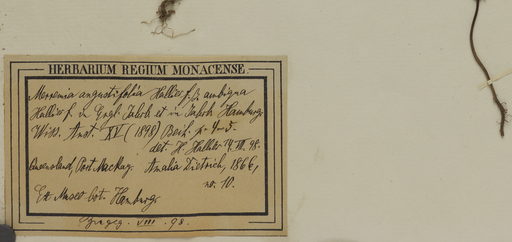 HERBARIUM REGIUM MONACENSE.
Merremia angustifolia Hallier f. β ambigua
Hallier f. in Engl. Jahrb. et in Jahrb. Hamburg.
Wiss. Anst. XV (1898) Beih. p. 4-5.
det. H. Hallier 98.
Queensland, Port Mackay. Amalia Dietrich, 1866,
no. 10.
Ex Museo bot. Hamburg.
VIII. 98.